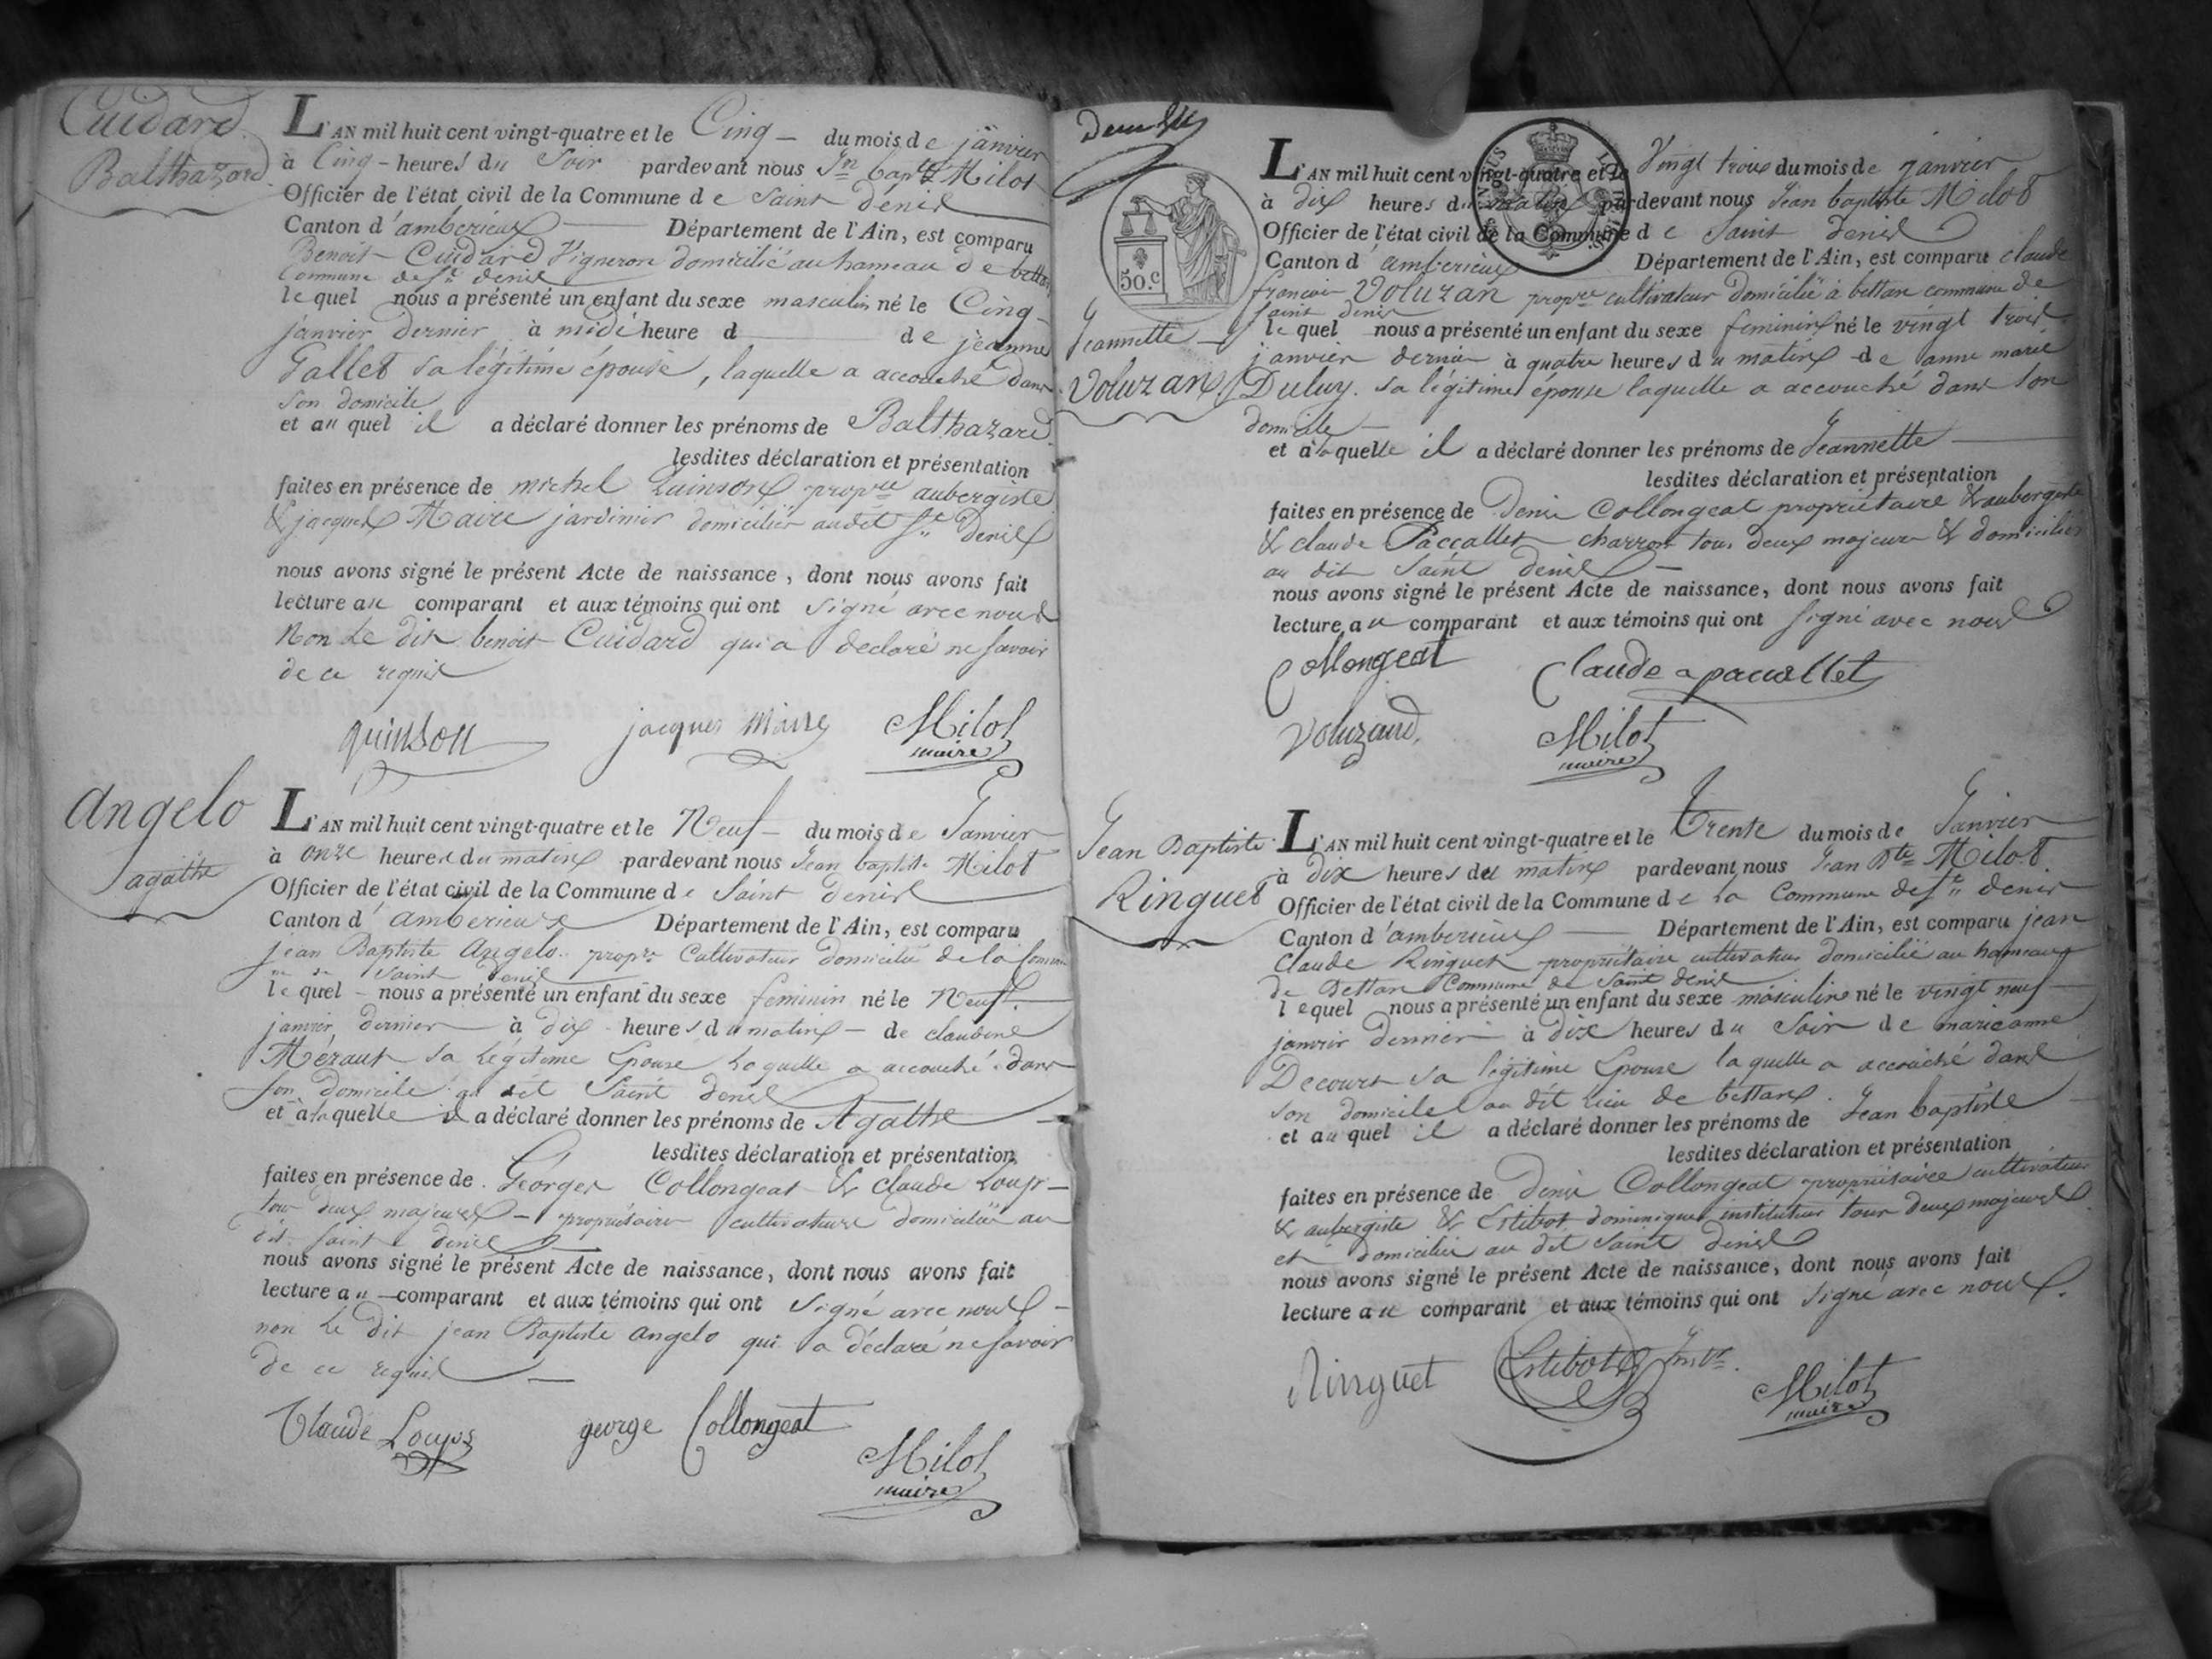 Cuidard
Balthazard
L'AN mil huit cent vingt-quatre et le Cinq du mois de janvier
à Cinq heures du Soir pardevant nous Jn Bapte Milot
Officier de l'état civil de la Commune de Saint denis
Canton d'amberieux Département de l'Ain, est comparu
Benoit Cuidard Vigneron domicilié au hameau de bettan
Commune de St denis
lequel nous a présenté un enfant du sexe masculin né le Cinq
janvier dernier à midi heure d de jeanne
Gallet sa légitime épouse, laquelle a accouché dans
son domicile
et auquel il a déclaré donner les prénoms de Balthazard
lesdites déclaration et présentation
faites en présence de michel Quinson propre aubergiste
& jacques Maire jardinier domiciliés audit St Denis
nous avons signé le présent Acte de naissance, dont nous avons fait
lecture au comparant et aux témoins qui ont signé avec nous
Non Le dit benoit Cuidard qui a declaré ne savoir
de ce requis
quinson jacques Maire Milot
maire
angelo
agathe
L'AN mil huit cent vingt-quatre et le Neuf du mois de Janvier
à onze heures du matin pardevant nous Jean baptiste Milot
Officier de l'état civil de la Commune de Saint denis
Canton d'amberieux Département de l'Ain, est comparu
jean Baptiste angelo propre Cultivateur domicilié de la Commu
ne de Saint Denis
lequel nous a présenté un enfant du sexe feminin né le Neuf
janvier dernier à dix heures du matin de claudine
Méraut sa légitime Epouse Laquelle a accouché dans
son domicile au dit Saint denis
et à laquelle il a déclaré donner les prénoms de Agathe
lesdites déclaration et présentation
faites en présence de Géorges Collongeat & claude Loups
tous deux majeurs propriétaires cultivateurs domiciliés au
dit saint denis
nous avons signé le présent Acte de naissance, dont nous avons fait
lecture au comparant et aux témoins qui ont signé avec nous
non Le dit jean Baptiste angelo qui a déclaré ne savoir
de ce requis
Claude Loups george Collongeat
Milot
maire
50. c
Jeannette
Voluzan
L'AN mil huit cent vingt-quatre et le Vingt trois du mois de janvier
à dix heures du matin pardevant nous Jean baptiste Milot
Officier de l'état civil de la Commune de Saint denis
Canton d'amberieux Département de l'Ain, est comparu claude
francois Voluzan propre cultivateur domicilié à bettan commune de
saint denis
lequel nous a présenté un enfant du sexe feminin né le vingt trois
janvier dernier à quatre heures du matin de anne marie
Duluy sa légitime épouse laquelle a accouché dans son
domicile
et à laquelle il a déclaré donner les prénoms de Jeannette
lesdites déclaration et présentation
faites en présence de Denis Collongeat propriétaire & aubergiste
& claude Paccallet charron tous deux majeurs & domiciliés
au dit Saint denis
nous avons signé le présent Acte de naissance, dont nous avons fait
lecture au comparant et aux témoins qui ont signé avec nous
Collongeat Claude paccallet
Voluzand Milot
maire
Jean Baptiste
Ringuet
L'AN mil huit cent vingt-quatre et le trente du mois de Janvier
à dix heures du matin pardevant nous Jean Bte Milot
Officier de l'état civil de la Commune de La Commune de St denis
Canton d'amberieux Département de l'Ain, est comparu jean
Claude Ringuet propriétaire cultivateur domicilié au hameau
de Bettan Commune de Saint denis
lequel nous a présenté un enfant du sexe masculin né le vingt neuf
janvier dernier à dix heures du Soir de marieanne
Decours sa légitime Epouse laquelle a accouché dans
son domicile au dit Lieu de bettan
et auquel il a déclaré donner les prénoms de Jean baptiste
lesdites déclaration et présentation
faites en présence de Denis Collongeat propriétaire cultivateur
& aubergiste & Estibot dominique instituteur tous deux majeurs
et domiciliés au dit Saint denis
nous avons signé le présent Acte de naissance, dont nous avons fait
lecture au comparant et aux témoins qui ont signé avec nous.
Ringuet Estibot Instr. Milot
maire